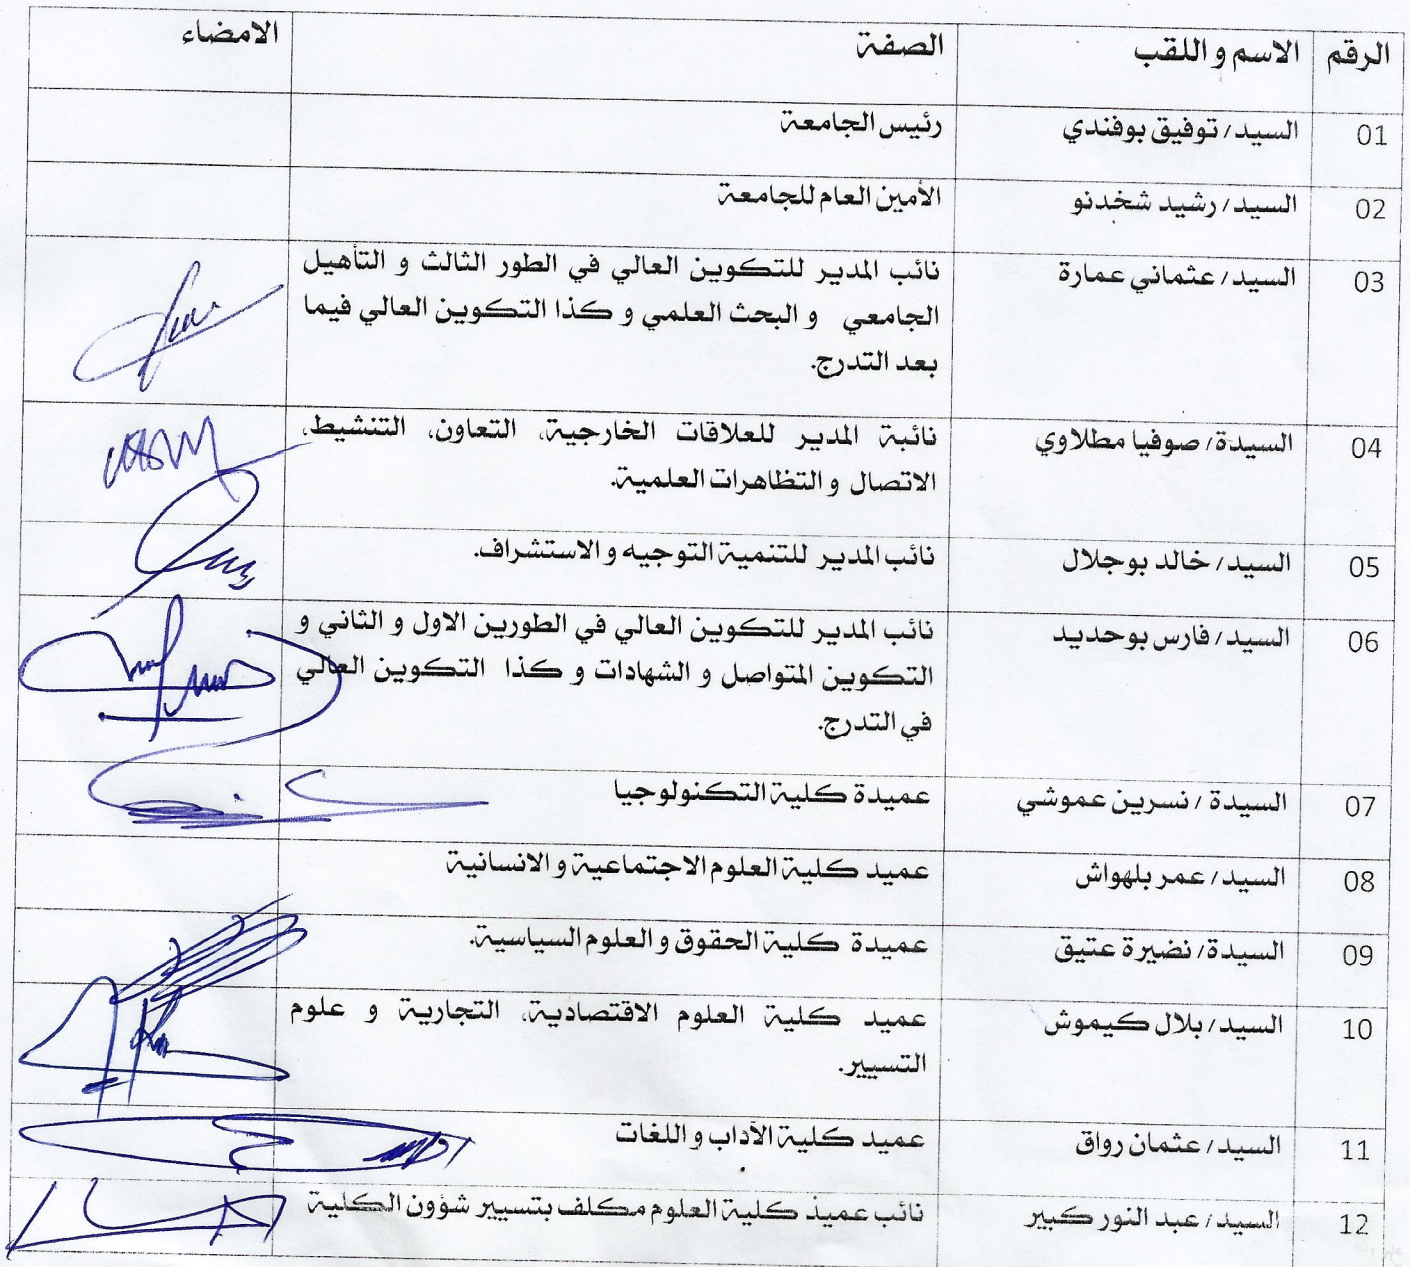 الرقم الاسم و اللقب الصفة الامضاء
01 السيد/ توفيق بوفندي رئيس الجامعة
02 السيد/ رشيد شخدنو الأمين العام للجامعة
03 السيد/ عثماني عمارة نائب المدير للتكوين العالي في الطور الثالث و التأهيل
الجامعي و البحث العلمي و كذا التكوين العالي فيما
بعد التدرج.
04 السيدة/ صوفيا مطلاوي نائبة المدير للعلاقات الخارجية، التعاون، التنشيط،
الاتصال و التظاهرات العلمية.
05 السيد/ خالد بوجلال نائب المدير للتنمية التوجيه و الاستشراف.
06 السيد/ فارس بوحديد نائب المدير للتكوين العالي في الطورين الاول و الثاني و
التكوين المتواصل و الشهادات و كذا التكوين العالي
في التدرج.
07 السيدة / نسرين عموشي عميدة كلية التكنولوجيا
08 السيد/ عمر بلهواش عميد كلية العلوم الاجتماعية و الانسانية
09 السيدة/ نضيرة عتيق عميدة كلية الحقوق و العلوم السياسية.
10 السيد/ بلال كيموش عميد كلية العلوم الاقتصادية، التجارية و علوم
التسيير.
11 السيد/ عثمان رواق عميد كلية الأداب و اللغات
12 السيد/ عبد النور كبير نائب عميذ كلية العلوم مكلف بتسيير شؤون الكلية